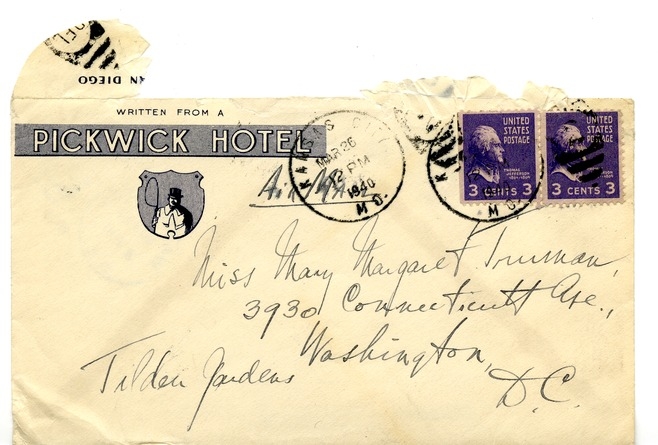 AN DIEGO
WRITTEN FROM A
PICKWICK HOTEL
KANSAS CITY
MAR 26
12 PM
1940
MO.
Air Mail
UNITED
STATES
POSTAGE
THOMAS
JEFFERSON
3 CENTS 3
UNITED
STATES
POSTAGE
3 CENTS 3
Miss Mary Margaret Truman,
3930 Connecticutt Ave.,
Washington,
Tilden Gardens
D.C.